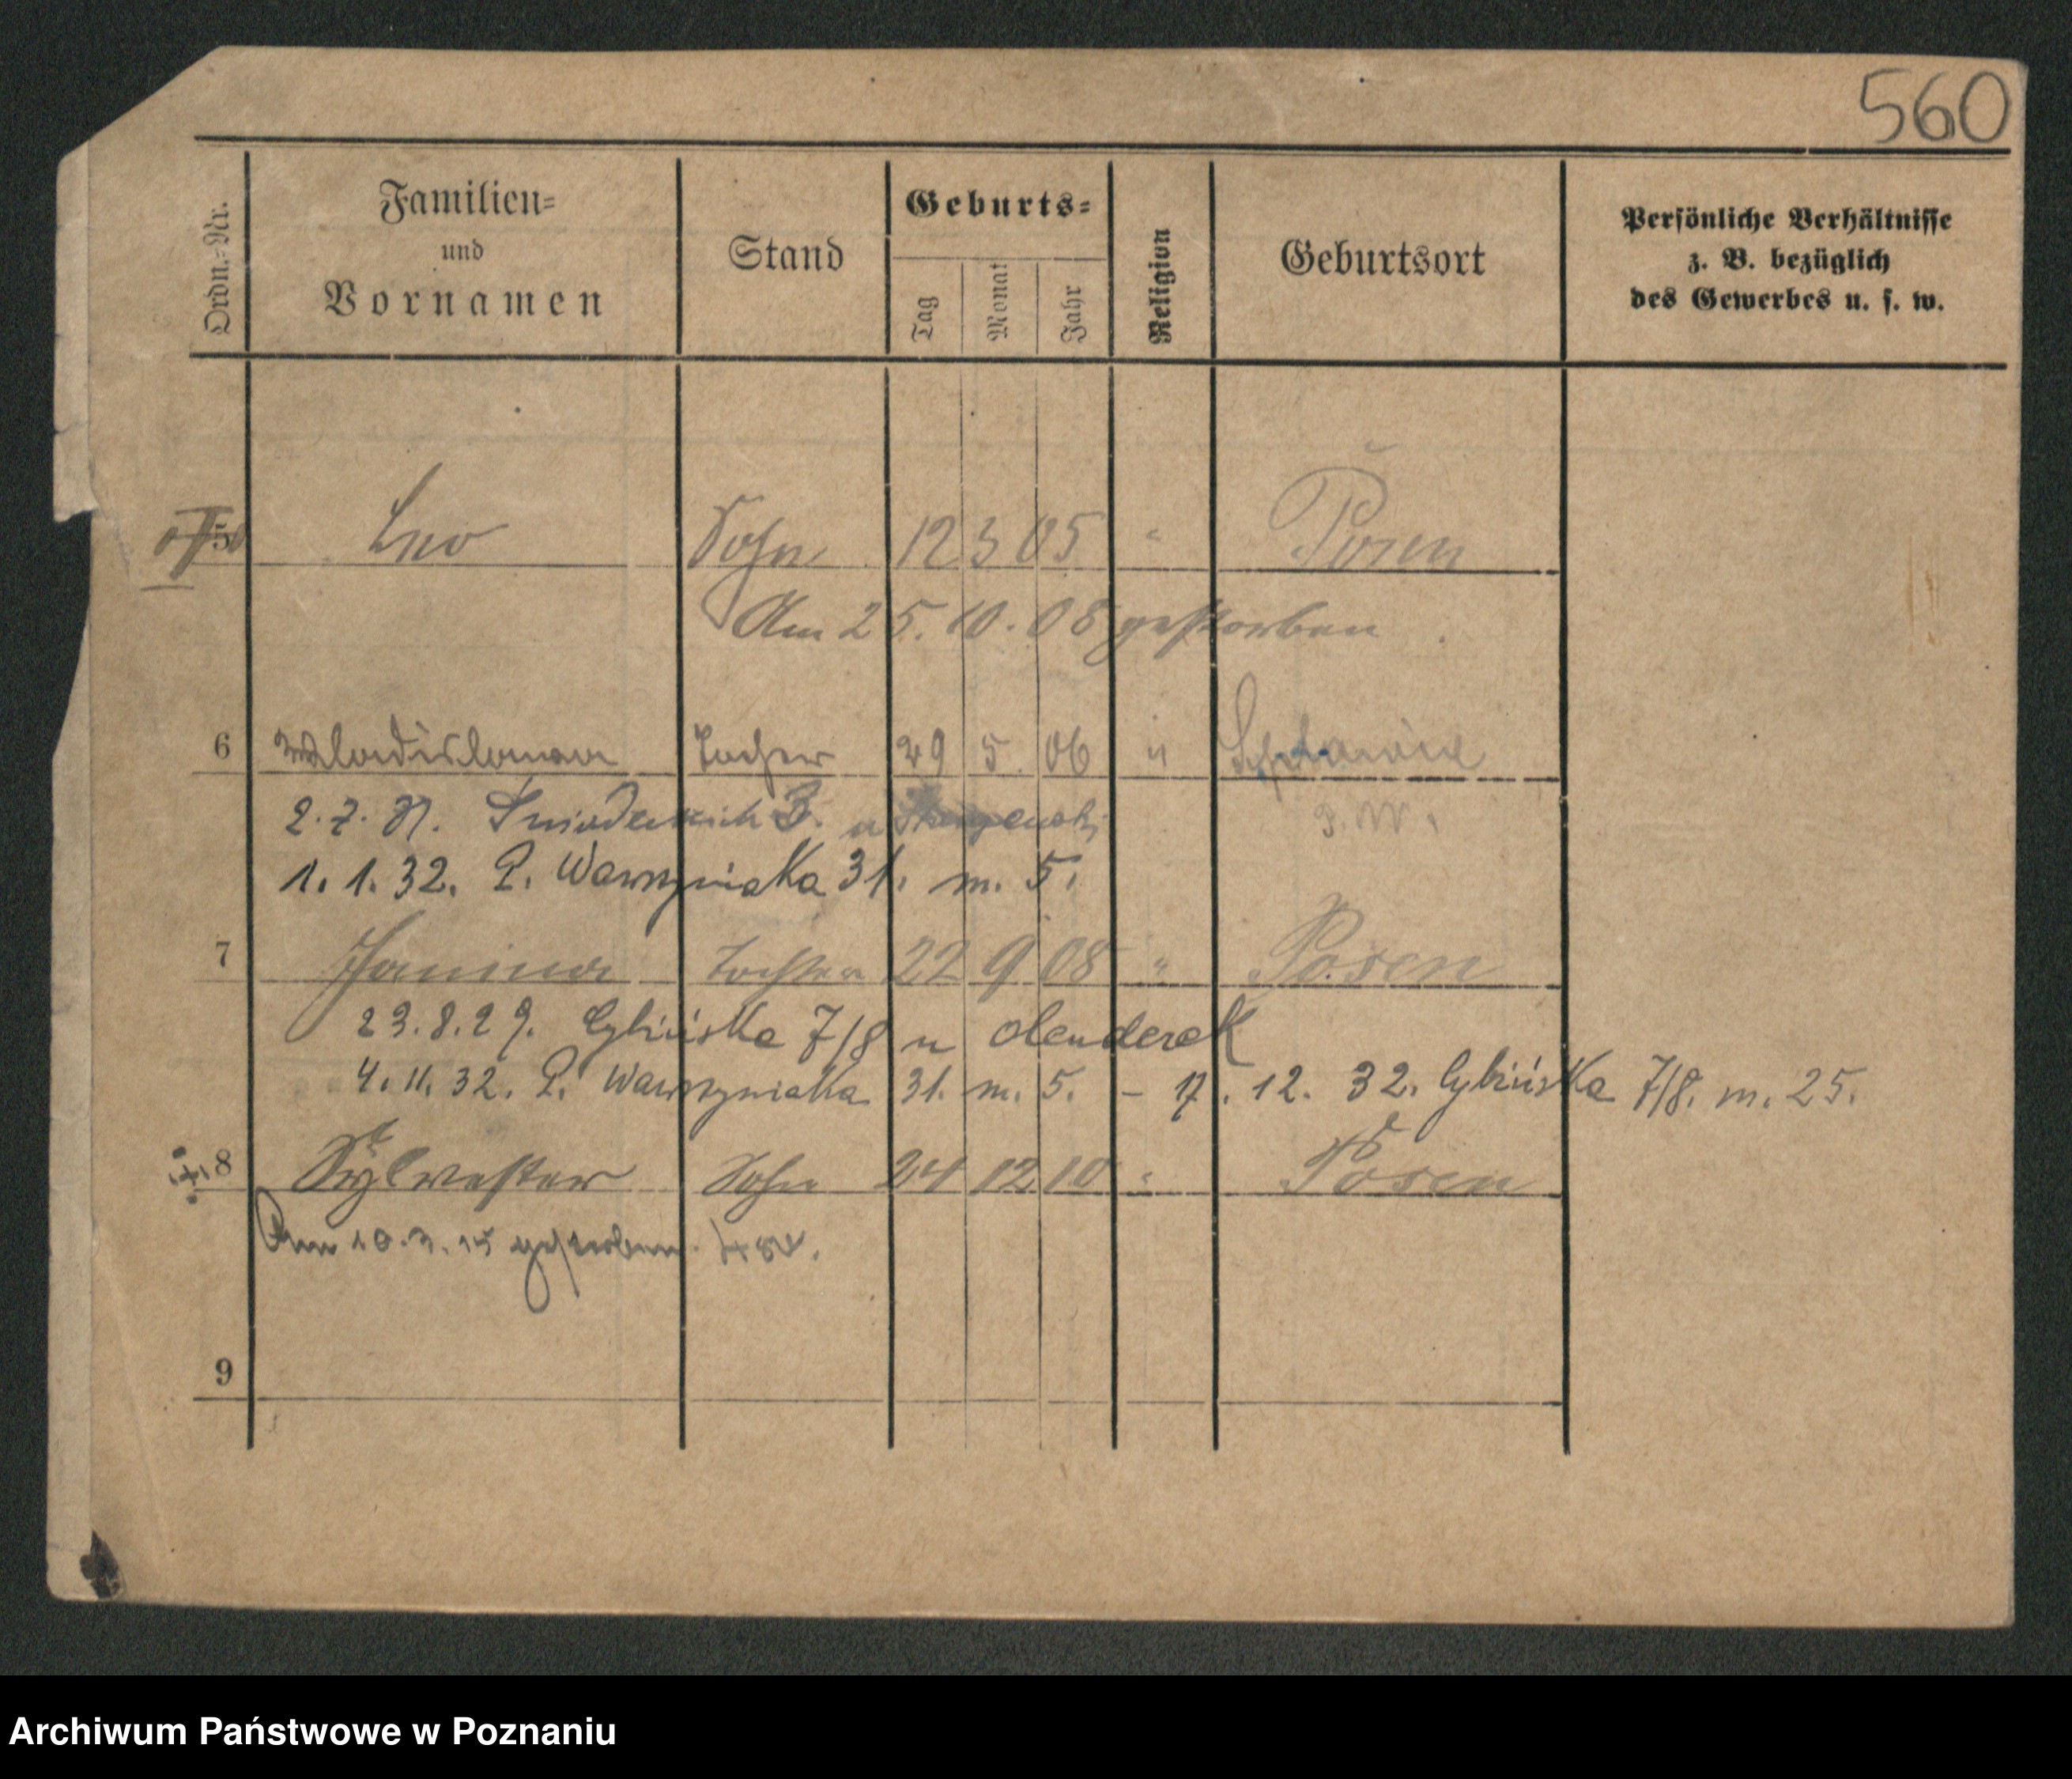 560
Ordn.-Nr. Familien- und Vornamen Stand Geburts- Tag Monat Jahr Religion Geburtsort Persönliche Verhältnisse z. B. bezüglich des Gewerbes u. s. w.
5 Leo Sohn 12 3 05 " Posen
Am 25. 10. 08 gestorben
6 Wladislawa Tochter 29 5 06 "
P. W.
2. 7. 31. u
1. 1. 32. P. Wawrzyniaka 31. m. 5.
7 Janina Tochter 22 9 08 " Posen
23. 8. 29. Cybińska 7/8 u Olenderek
4. 11. 32. P. Wawrzyniaka 31. m. 5. – 17. 12. 32. Cybińska 7/8. m. 25.
8 Sylvester Sohn 24 12 10 " Posen
Am 10. 3. 15 gestorben.
9
Archiwum Państwowe w Poznaniu